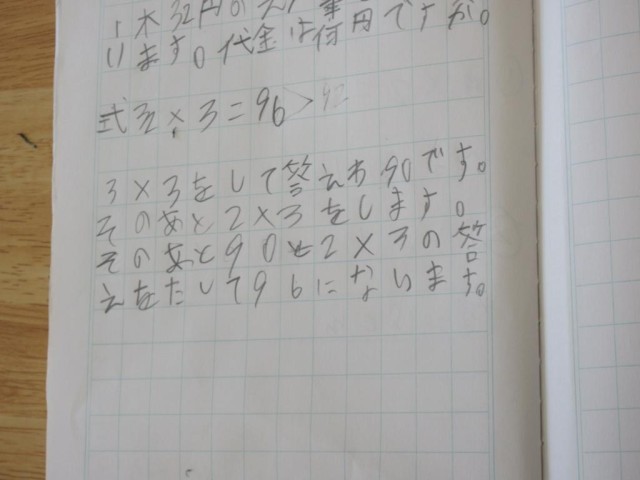 1本32円のえん筆
います。代金は何円ですか。
式 32×3=96
3×3をして答えわ90です。
そのあと2×3をします。
そのあと90と2×3の答
えをたして96にないます。